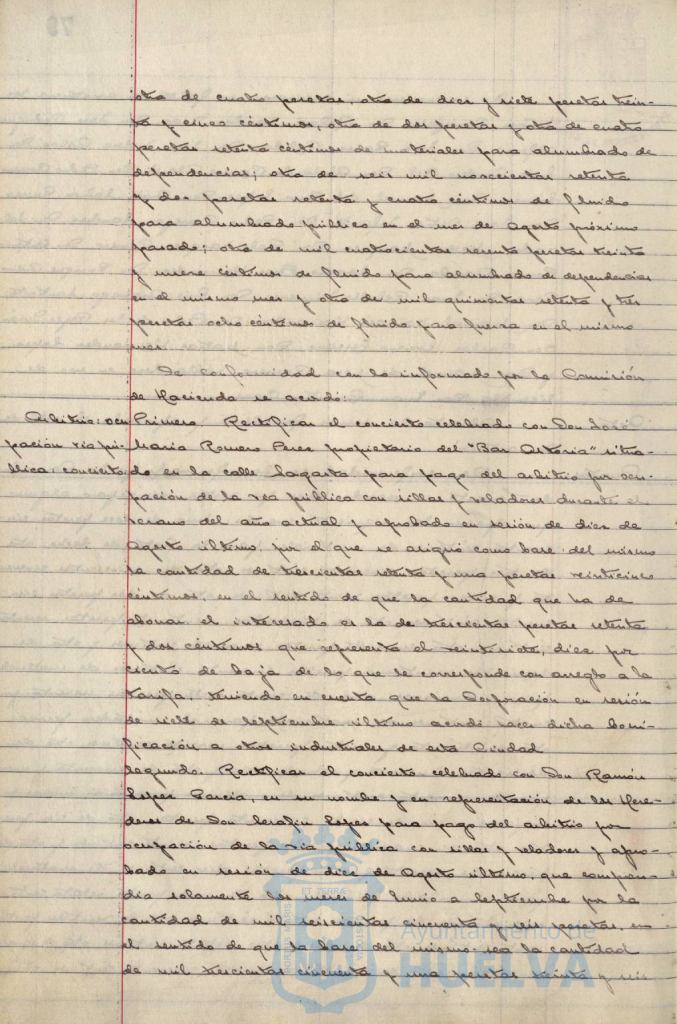 otra de cuatro pesetas, otra de diez y siete pesetas trein-
ta y cinco céntimos, otra de dos pesetas y otra de cuatro
pesetas setenta céntimos de materiales para alumbrado de
dependencias; otra de seis mil novecientas setenta
y dos pesetas setenta y cuatro céntimos de fluido
para alumbrado público en el mes de Agosto próximo
pasado; otra de mil cuatrocientas sesenta pesetas treinta
y nueve céntimos de fluido para alumbrado de dependencias
en el mismo mes y otra de mil quinientas setenta y tres
pesetas ocho céntimos de fluido para fuerza en el mismo
mes.
De conformidad con lo informado por la Comisión
de Hacienda se acordó:
Arbitrio: ocu
pación vía pú-
blica: concierto
Primero. Rectificar el concierto celebrado con Don José
María Romero Perez propietario del "Bar Astoria" situa-
do en la calle Sagasta para pago del arbitrio por ocu-
pación de la vía pública con sillas y veladores durante el
verano del año actual y aprobado en sesión de diez de
Agosto último, por el que se asignó como base del mismo
la cantidad de trescientas setenta y una pesetas veinticinco
céntimos, en el sentido de que la cantidad que ha de
abonar el interesado es la de trescientas pesetas setenta
y dos céntimos que representa el veintisiete, diez por
ciento de baja de lo que le corresponde con arreglo a la
tarifa, teniendo en cuenta que la Corporación en sesión
de siete de septiembre último acordó hacer dicha boni-
ficación a otros industriales de esta Ciudad
Segundo. Rectificar el concierto celebrado con Don Ramón
Lopez García, en su nombre y en representación de los Here-
deros de Don Serafin Lopez para pago del arbitrio por
ocupación de la vía pública con sillas y veladores y apro-
bado en sesión de diez de Agosto último, que compren-
día solamente los meses de Junio a Septiembre por la
cantidad de mil seiscientas cincuenta y seis pesetas, en
el sentido de que la base del mismo sea la cantidad
de mil trescientas cincuenta y una pesetas treinta y seis
Ayuntamiento de
HUELVA